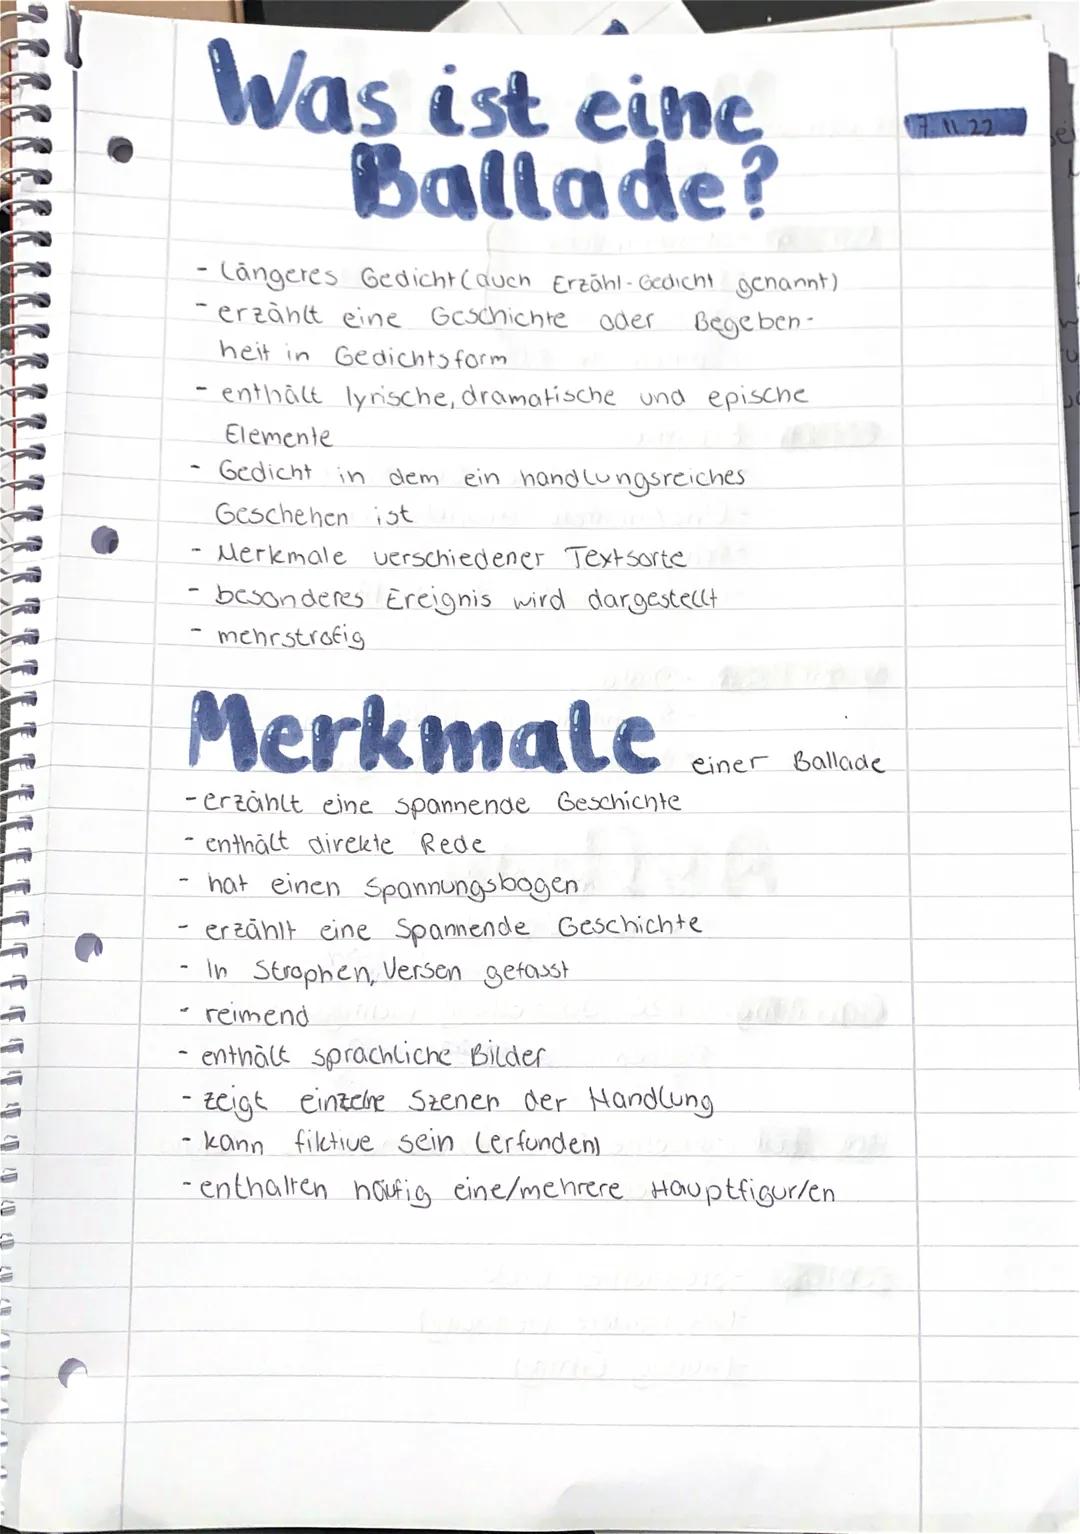 Was ist eine
Ballade?
7.11.22
- längeres Gedicht (auch Erzähl-Gedicht genannt)
- erzählt eine Geschichte oder Begeben-
heit in Gedichtsform
- enthält lyrische, dramatische und epische
Elemente
- Gedicht in dem ein handlungsreiches
Geschehen ist
- Merkmale verschiedener Textsorte
- besonderes Ereignis wird dargestellt
- mehrstrofig
Merkmale einer Ballade
- erzählt eine spannende Geschichte
- enthält direkte Rede
- hat einen Spannungsbogen
- erzählt eine Spannende Geschichte
- In Strophen, Versen gefasst
- reimend
- enthält sprachliche Bilder
- zeigt einzelne Szenen der Handlung
- kann fiktive sein (erfunden)
- enthalten häufig eine/mehrere Hauptfigur/en